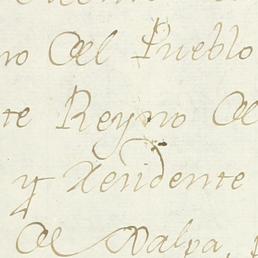 no del Pueblo
te Reyno de
y Xendente
de Xalpa,